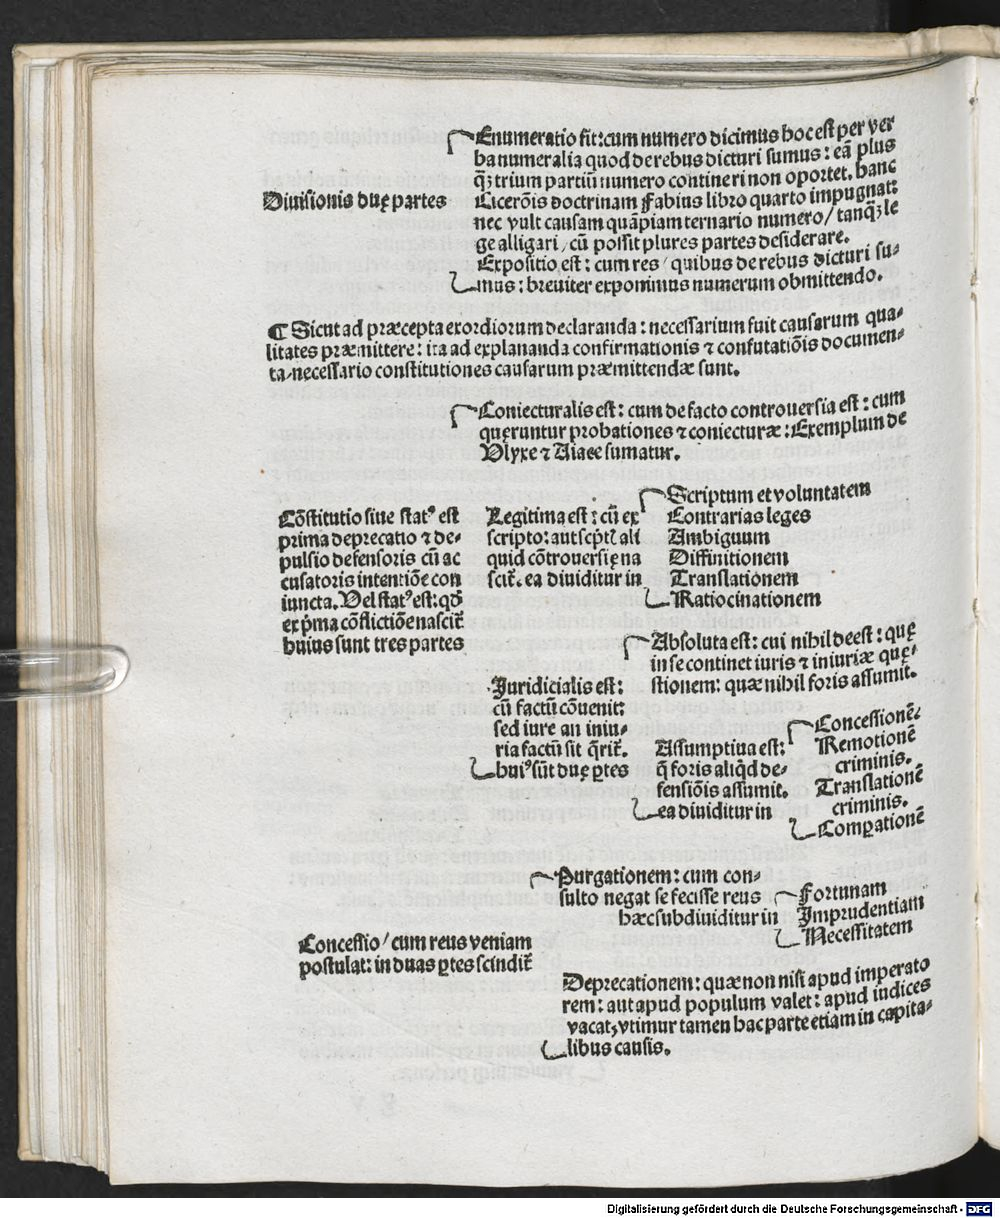 Diuisionis duę partes
Enumeratio fit: cum numero dicimus hoc est per ver
ba numeralia quod de rebus dicturi sumus: eā plus
q̄ꝫ trium partiū numero contineri non oportet. hanc
Cicerōis doctrinam Fabius libro quarto impugnat:
nec vult causam quāpiam ternario numero / tanq̄ꝫ le
ge alligari / cū possit plures partes desiderare.
Expositio est: cum res / quibus de rebus dicturi su-
mus: breuiter exponimus numerum obmittendo.
¶ Sicut ad præcepta exordiorum declaranda: necessarium fuit causarum qua-
litates præmittere: ita ad explananda confirmationis ⁊ confutatiōis documen-
ta / necessario constitutiones causarum præmittendæ sunt.
Constitutio siue statꝰ est
prima deprecatio ⁊ de-
pulsio defensoris cū ac
cusatoris intentiōe con
iuncta. Vel statꝰ est: qđ
ex pͥma cōflictiōe nascit᷑
huius sunt tres partes
Coniecturalis est: cum de facto controuersia est: cum
quęruntur probationes ⁊ coniecturæ: Exemplum de
Vlyxe ⁊ Aiace sumatur.
Legitima est: cū ex
scripto: aut scp̄tͥ ali
quid cōtrouersię na
scit᷑. ea diuiditur in
Scriptum et voluntatem
Contrarias leges
Ambiguum
Diffinitionem
Translationem
Ratiocinationem
Juridicialis est:
cū factū cōuenit:
sed iure an iniu-
ria factū sit q̄rit᷑.
huiꝰ sūt duę ꝑtes
Absoluta est: cui nihil deest: quę
in se continet iuris ⁊ iniuriæ quę-
stionem: quæ nihil foris assumit.
Assumptiua est:
q̄ foris aliq̇d de-
fensiōis assumit.
ea diuiditur in
Concessionē:
Remotionē
criminis.
Translationē
criminis.
Comꝑationē
Concessio / cum reus veniam
postulat: in duas ꝑtes scindit᷑
Purgationem: cum con-
sulto negat se fecisse reus
hæc subdiuiditur in
Fortunam
Imprudentiam
Necessitatem
Deprecationem: quæ non nisi apud imperato
rem: aut apud populum valet: apud iudices
vacat, vtimur tamen hac parte etiam in capita-
libus causis.
Digitalisierung gefördert durch die Deutsche Forschungsgemeinschaft - DFG